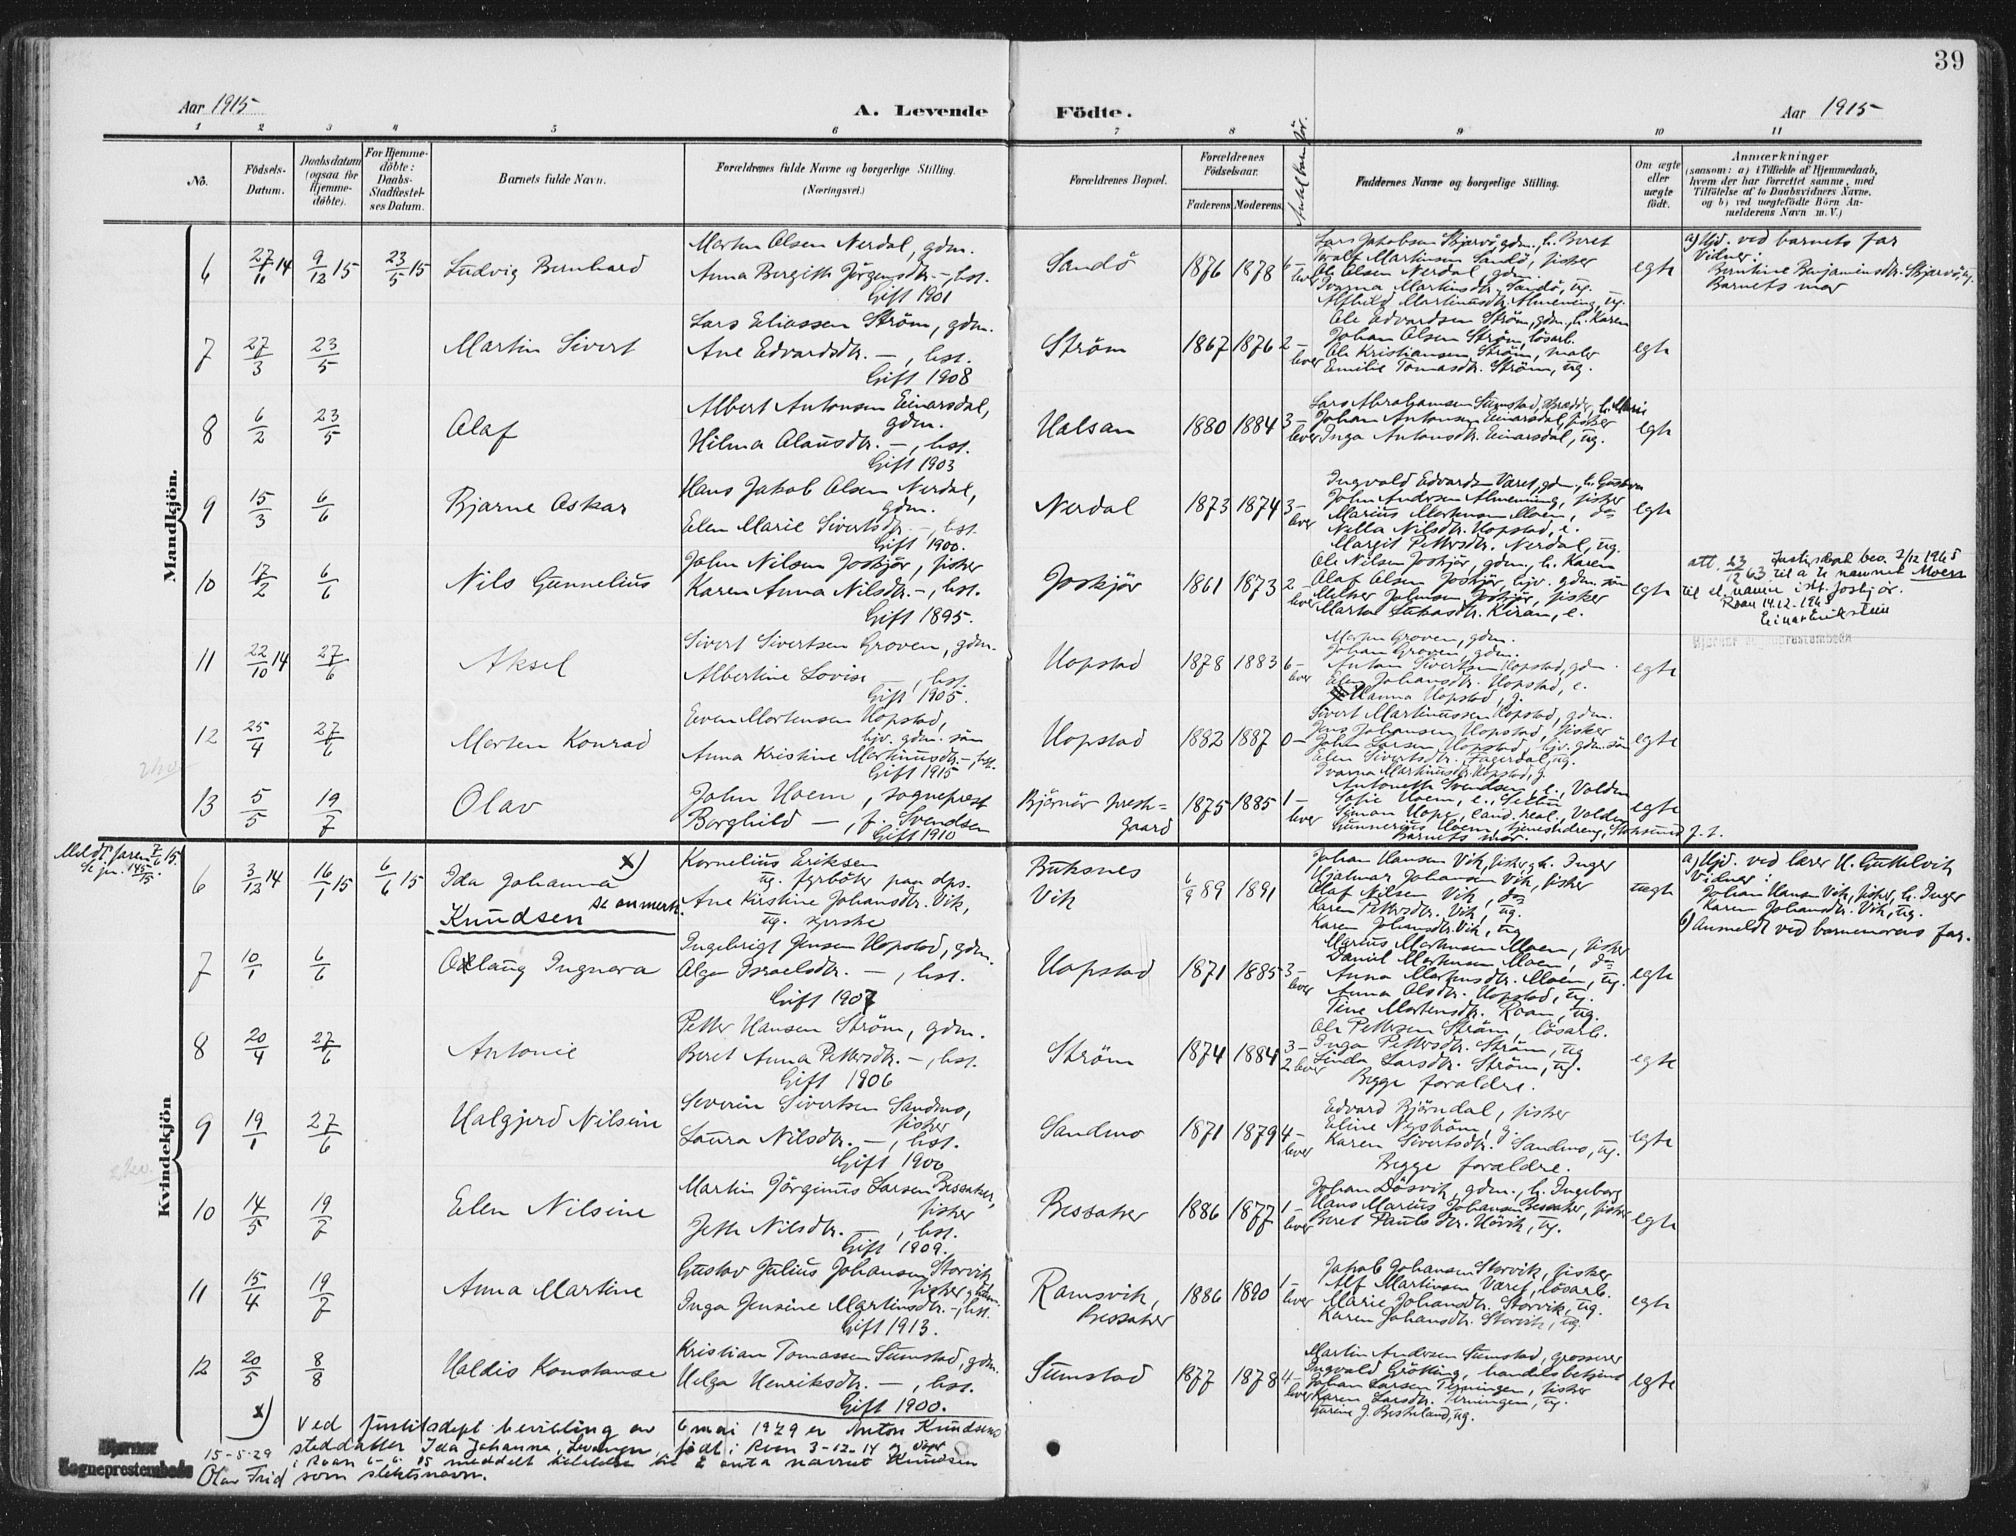 39
Aar 1915
A. Levende Födte.
Aar 1915
1 2 3 4 5 6 7 8 9 10 11
No.
Födsels-Datum.
Daabsdatum (ogsaa for Hjemme-döbte).
For Hjemme-döbte: Daabs-Stadfæstel-ses Datum.
Barnets fulde Navn.
Forældrenes fulde Navne og borgerlige Stilling. (Næringsvei.)
Forældrenes Bopæl.
Forældrenes Födselsaar.
Faderens Moderens
Antal barn før.
Faddernes Navne og borgerlige Stilling.
Om ægte eller uægte født.
Anmærkninger
(saasom: a) i Tilfælde af Hjemmedaab,
hvem der har forrettet samme, med
Tilføielse af to Daabsvidners Navne,
og b) ved uægtefødte Börn An-
melderens Navn m. V.)
Mandkjön.
6 27/11 14 9/12 15 23/5 15 Ludvig Bernhard
Morten Olsen Nerdal, gdm.
Anna Bergith Jörgensdtr. –, hst.
Gift 1901
Sandö 1876 1878 6 – lever
Lars Jakobsen Skjervö, gdm., h. Beret
Martinsen Sandö, fisker
Ole Olsen Nerdal, gdm.
Ivarna Martinsdtr. Sandö, ug.
Alfhild Martinusdtr. Almenning, ug.
egte
a) Hjd. ved barnets far
Vidner:
Berntine Benjaminsdtr. Skjervö, ug.
Barnets mor
7 27/3 23/5 Martin Sivert
Lars Eliassen Ström, gdm.
Ane Edvardsdtr. –, hst.
Gift 1908
Ström 1867 1876 2 – lever
Ole Edvardsen Ström, gdm., h. Karen
Johan Olsen Ström, lösarb.
Ole Kristiansen Ström, maler
Emilie Tomasdtr. Ström, ug.
egte
8 6/2 23/5 Olaf
Albert Antonsen Einarsdal,
gdm.
Hilma Olausdtr. –, hst.
Gift 1903
Halsan 1880 1884 3 – lever
Lars Abrahamsen Sumstad, h. Marie
Johan Antonsen Einarsdal, fisker
Inga Antonsdtr. Einarsdal, ug.
egte
9 15/3 6/6 Bjarne Oskar
Hans Jakob Olsen Nerdal,
gdm.
Elen Marie Sivertsdtr. –, hst.
Gift 1900.
Nerdal 1873 1874 3 – lever
Ingvald Edvardsen Været, gdm., h. Gustava
John Andersen Almenning, fisker
Marius Mortensen Moen, do
Nella Nilsdtr. Hopstad, e.
Margit Pettersdtr. Nerdal, ug.
egte
10 17/2 6/6 Nils Gunnelius
John Nilsen Joskjör, fisker
Karen Anna Nilsdtr. –, hst.
Gift 1895.
Joskjör 1861 1873 2 – lever
Ole Nilsen Joskjör, gdm., h. Karen
Olaf Olsen Joskjör, hjv. gdm. sön
Johnsen Joskjör, fisker
Marta Lukasdtr. Kiran, e.
egte
att. 23/12 63 Justisdept. bev. 2/12 1965
til å ta navnet Moen
til sl.navn istf. Joskjør.
Roan 14.12.1965
Einar Eriksteen
11 22/10 14 27/6 Aksel
Sivert Sivertsen Groven, gdm.
Albertine Lovise –, hst.
Gift 1905.
Hopstad 1878 1883 6 – lever
Morten Groven, gdm.
Johan Groven, gdm.
Anton Sivertsen Hopstad, gdm.
Elen Johansdtr. Hopstad, e.
Hanna Hopstad, g.
egte
12 25/4 27/6 Morten Konrad
Even Mortensen Hopstad,
hjv. gdm. sön
Anna Kristine Martinusdtr. –, hst.
Gift 1915
Hopstad 1882 1887 0 –
Sivert Martinussen Hopstad, gdm.
Jens Johansen Hopstad, fisker
John Larsen Hopstad, hjv. gdm. sön
Elen Sivertsdtr. Fagerdal, ug.
Ivarna Martinusdtr. Hopstad, g.
egte
13 5/5 19/7 Olav
John Hoem, sogneprest
Borghild –, f. Svendsen
Gift 1910
Björnör prest-
gaard
1875 1885 1 – lever
Antonette Svendsen, e., Volden
Sofie Hoem, e.,
Simon Hopø, cand. real., Volden
Gunnerius Hoem, tjenestedreng, Stoksund p.t.
Barnets mor
egte
Kvindekjön
Meldt faren 7/6 15.
6 3/12 14 16/1 15 6/6 15 Ida Johanna x)
Knudsen se anmerk.
Kornelius Eriksen
ug. fyrböter paa dps.
Ane Kirstine Johansdtr. Vik,
ug. syerske
Buksnes
Vik
6/9 89 1891
Johan Hansen Vik, fisker, h. Inger
Hjalmar Johansen Vik, fisker
Olaf Nilsen Vik, do
Karen Pettersdtr. Vik, ug.
Karen Johansdtr. Vik, ug
uegte
a) Hjd. ved lærer H. Guttelvik
Vidner:
Johan Hansen Vik, fisker, h. Inger
Karen Johansdtr. Vik, ug.
b) Anmeldt ved barnemorens far.
7 10/1 6/6 Oslaug Ingvara
Ingebrigt Jensen Hopstad, gdm.
Olga Israelsdtr. –, hst.
Gift 1907
Hopstad 1871 1885 3 – lever
Marius Mortensen Moen, fisker
Daniel Mortensen Moen, do
Anna Mortensdtr. Moen, ug.
Anna Olsdtr. Hopstad, ug.
Tine Mortensdtr. Roan, ug.
egte
8 20/4 27/6 Antonie
Petter Hansen Ström, gdm.
Beret Anna Pettersdtr. –, hst.
Gift 1906
Ström 1874 1884 3 – 2 lever
Ole Pettersen Ström, lösarb.
Inga Pettersdtr. Ström, ug
Linda Larsdtr. Ström, ug.
Begge foraldre.
egte
9 19/1 27/6 Halgjerd Nilsine
Severin Sivertsen Sandmo,
fisker
Laura Nilsdtr. –, hst.
Gift 1900
Sandmo 1871 1879 4 – lever
Edvard Björndal, fisker
Eline Nyström, g.
Karen Sivertsdtr. Sandmo, ug.
Begge foraldre.
egte
10 14/5 19/7 Elen Nilsine
Martin Jörginus Larsen Bessaker,
fisker
Jette Nilsdtr. –, hst.
Gift 1909.
Bessaker 1886 1877 1 – lever
Johan Dösvik, gdm., h. Ingeborg
Hans Marius Johansen Bessaker, fisker
Beret Paulsdtr. Hövik, ug.
egte
11 15/4 19/7 Anna Martine
Gustav Julius Johansen Storvik
fisker, gdm.
Inga Jensine Martinsdtr. –, hst.
Gift 1913.
Ramsvik,
Bessaker
1886 1890 1 – lever
Jakob Johansen Storvik, fisker
Alf Martinsen Været, lösarb.
Marie Johansdtr. Storvik, ug.
Karen Johansdtr. Storvik, ug.
egte
12 20/5 8/8 Haldis Konstanse
Kristian Tomassen Sumstad, gdm.
Helga Henriksdtr. –, hst.
Gift 1900.
Sumstad 1877 1878 4 – lever
Martin Andersen Sumstad, grosserer
Ingvald Grötting, handelsbetjent
Johan Larsen Terningen, fisker
Karen Larsdtr. Terningen, ug.
Gurine J. Besseland, ug.
egte
x) Ved justisdept bevilling av 6 mai 1929 er Anton Knudsens
steddatter Ida Johanna, Levangen, født i Roan 3-12-14 og døpt
i Roan 6-6-15 meddelt tilladelse til å anta navnet Knudsen
som slektsnavn.
15-5-29
Olav Frid
Bjørnør
Sogneprestembede